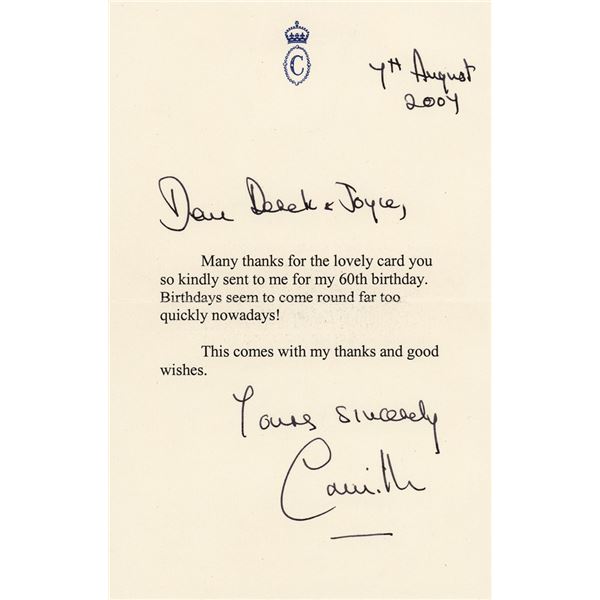 C
7TH August
2007
Dear Derek & Joyce,
Many thanks for the lovely card you
so kindly sent to me for my 60th birthday.
Birthdays seem to come round far too
quickly nowadays!
This comes with my thanks and good
wishes.
Yours sincerely
Camilla